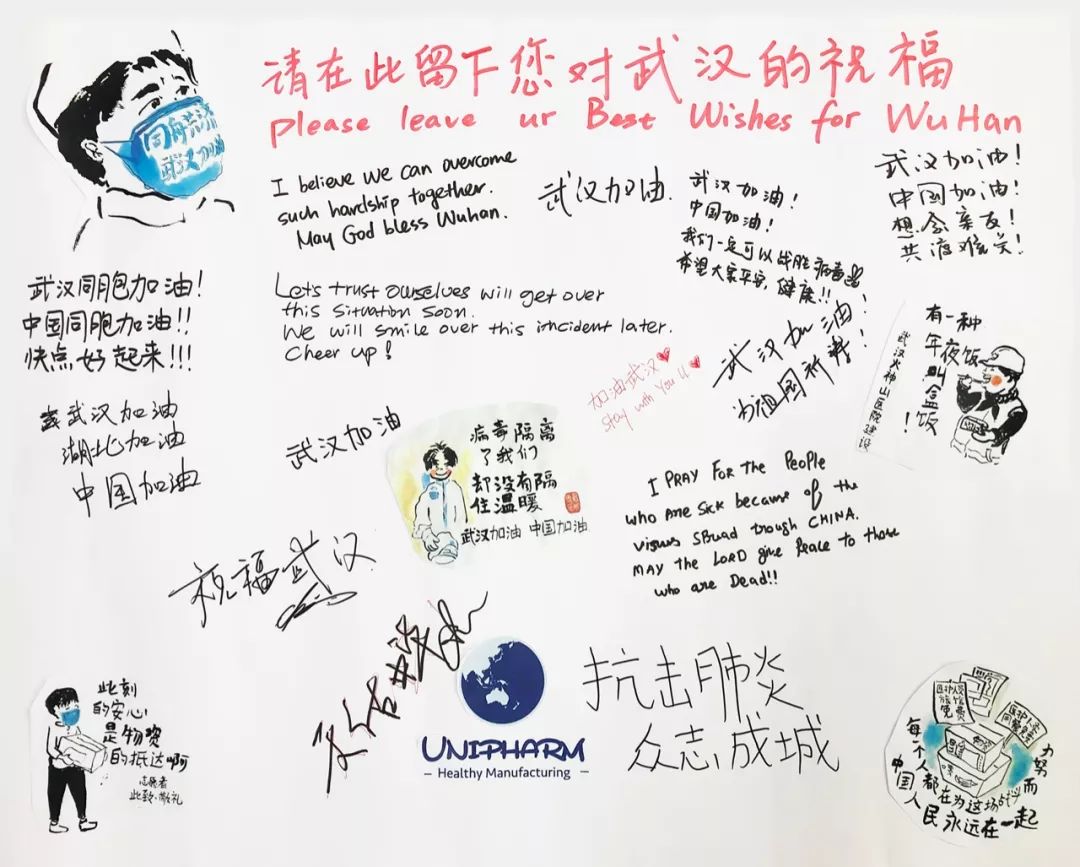 请在此留下您对武汉的祝福
Please leave ur Best Wishes for WuHan
武汉加油
I believe we can overcome
such hardship together.
May God bless Wuhan.
武汉加油.
武汉加油!
中国加油!
我们一定可以战胜病毒
希望大家平安,健康!!
武汉加油!
中国加油!
想念亲友!
共渡难关!
武汉同胞加油!
中国同胞加油!!
快点好起来!!!
Lets trust ourselves will get over
this situation soon.
We will smile over this incident later.
Cheer up!
加油武汉
Stay with You
武汉加油!
为祖国祈祷!
有一种
年夜饭
叫盒饭
!
武汉火神山医院建设
武汉加油
湖北加油
中国加油
武汉加油
病毒隔离
了我们
却没有隔
住温暖
武汉加油 中国加油
I PRAY FOR the PEOPLE
who are sick because of the
viruus spruad trough CHINA.
MAY the LORD give Peace to those
who are Dead!!
祝福武汉
UNIPHARM
Healthy Manufacturing
抗击肺炎
众志成城
此刻
的安心
是物资
的抵达啊
志愿者
此致、敬礼
每个人都在为这场战斗而努力
中国人民永远在一起